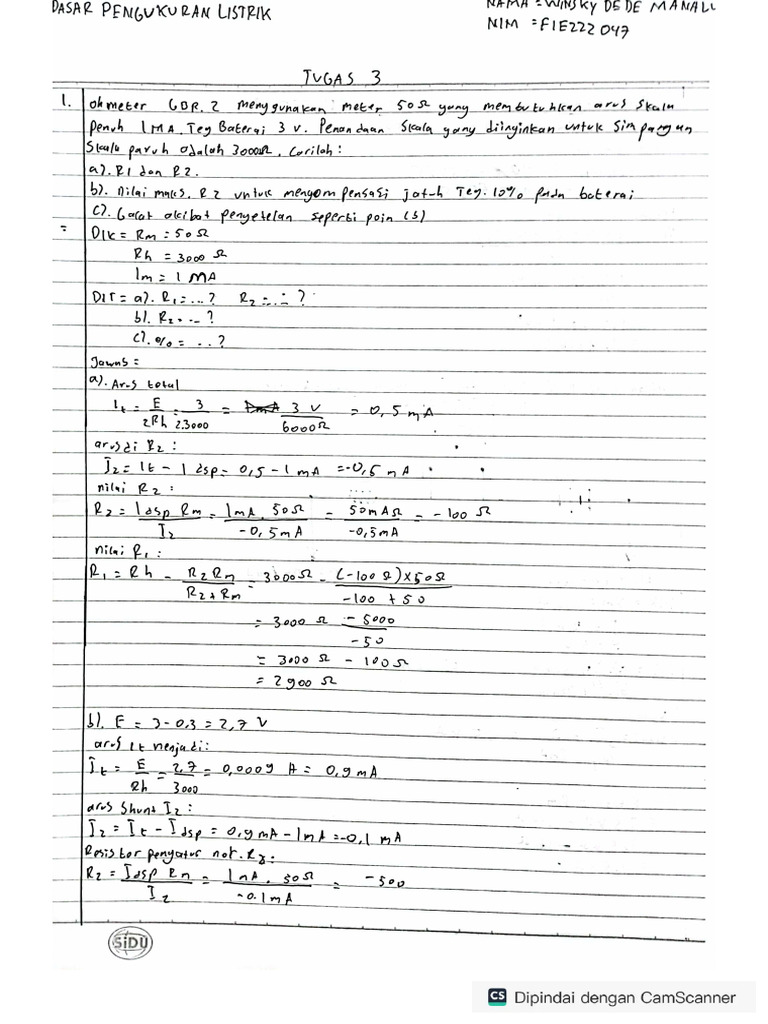 DASAR PENGUKURAN LISTRIK
NAMA = WINSKY DEDE MANALU
NIM = F1E222047
TUGAS 3
1. ohmeter GBR. 2 menggunakan meter 50Ω yang membutuhkan arus skala
penuh 1MA. Teg Baterai 3 V. Penandaan skala yang diinginkan untuk simpangan
skala paruh adalah 3000Ω. Carilah :
a). R1 dan R2.
b). nilai maks. R2 untuk mengompensasi jatuh Teg. 10% pada baterai
c). Galat akibat penyetelan seperti poin (b)
= Dik = Rm = 50 Ω
Rh = 3000 Ω
Im = 1 MA
DIT = a). R₁ = ...? R₂ = ...?
b). R₂ = ...?
c). % = ...?
Jawab :
a). Arus total
It = E/2Rh = 3/2.3000 = 3 V/6000Ω = 0,5 mA
arus di R₂ :
I₂ = It - Idsp = 0,5 - 1 mA = -0,5 mA
nilai R₂ :
R₂ = Idsp Rm/I₂ = 1mA. 50Ω/-0,5mA = 50mAΩ/-0,5mA = -100 Ω
nilai R₁ :
R₁ = Rh - R₂Rm/R₂+Rm = 3000Ω - (-100 Ω)x50Ω/-100 + 50
= 3000 Ω - 5000/-50
= 3000 Ω - 100Ω
= 2900 Ω
b). E = 3-0,3 = 2,7 V
arus It menjadi :
It = E/Rh = 2,7/3000 = 0,0009 A = 0,9 mA
arus Shunt I₂ :
I₂ = It - Idsp = 0,9 mA - 1mA = -0,1 mA
Resistor pengatur nol. R₂ :
R₂ = Idsp Rm/I₂ = 1mA. 50Ω/-0.1mA = -500
SiDU
CS Dipindai dengan CamScanner